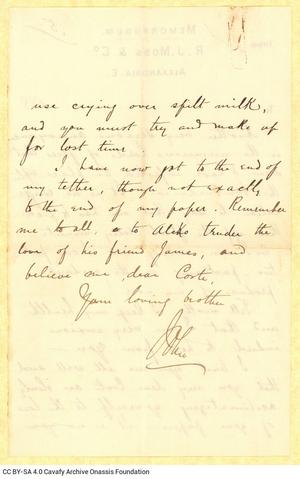 use crying over spilt milk,
and you must try and make up
for lost time.
I have now got to the end of
my tether, though not exactly
to the end of my paper. Remember
me to all, & to Aleko tender the
love of his friend James, and
believe me, dear Costi,
Your loving brother
John
MEMORANDUM.
R. J. MOSS & Co
ALEXANDRIA. E.
CC BY-SA 4.0 Cavafy Archive Onassis Foundation